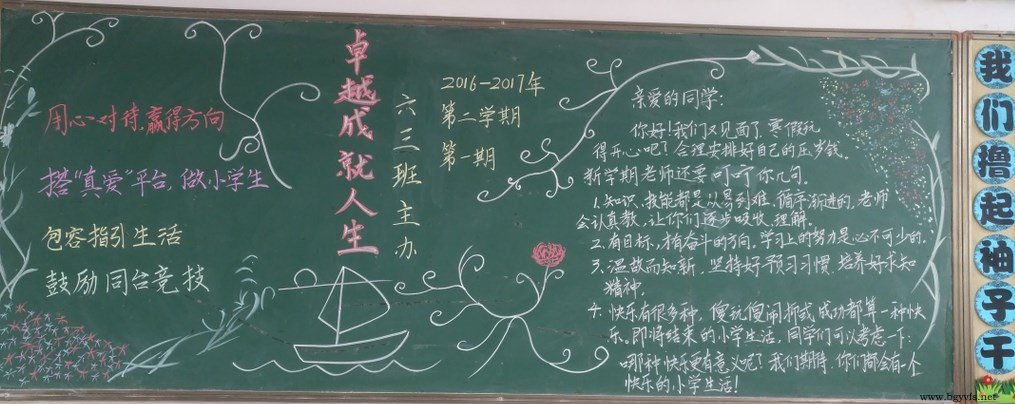 用心对待,赢得方向
搭“真爱”平台,做小学生
包容指引生活
鼓励同台竞技
卓越成就人生
六三班主办
2016-2017年
第二学期
第一期
亲爱的同学:
你好!我们又见面了,寒假玩
得开心吧?合理安排好自己的压岁钱。
新学期老师还要叮咛你几句。
1.知识、技能都是从易到难、循序渐进的,老师
会认真教,让你们逐步吸收、理解。
2.有目标,才有奋斗的方向,学习上的努力是必不可少的.
3.温故而知新,坚持好预习习惯,培养好求知
精神.
4.快乐有很多种,傻玩傻闹抑或成功都算一种快
乐。即将结束的小学生活,同学们可以考虑一下:
哪种快乐更有意义呢?我们期待,你们都会有一个
快乐的小学生活!
我们撸起袖子干
www.bgyyfs.net